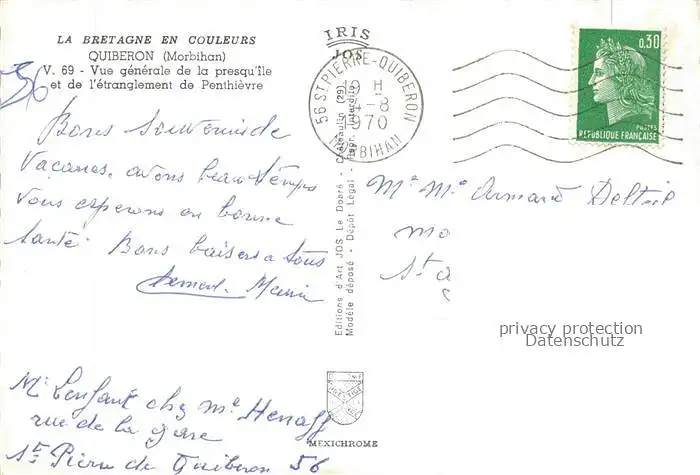 LA BRETAGNE EN COULEURS
QUIBERON (Morbihan)
V. 69 - Vue générale de la presqu'île
et de l'étranglement de Penthièvre
56
Bons Souvenirs de
Vacances. avons beau temps
Vous esperons en bonne
Santé. Bons baisers a tous
IRIS
JOS
56 ST PIERRE-QUIBERON
19 H
-8
1970
MORBIHAN
0,30
POSTES
REPUBLIQUE FRANÇAISE
Editions d'Art JOS Le Doaré - Châteaulin (29)
Modèle déposé - Dépôt Légal - Repr. interdite
Me Me Armand Delteil
St
privacy protection
Datenschutz
Me Lenfant chez me Henaff
rue de la gare
St Pierre de Quiberon 56
MEXICHROME